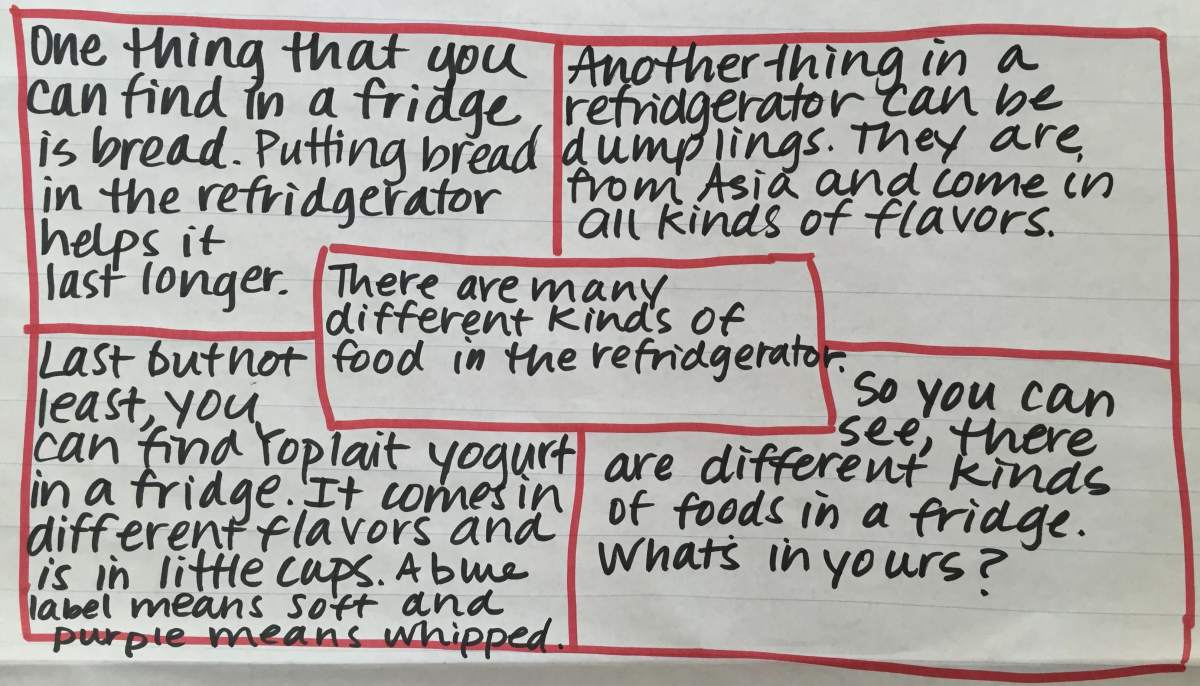 One thing that you
can find in a fridge
is bread. Putting bread
in the refridgerator
helps it
last longer.
Another thing in a
refridgerator can be
dumplings. They are
from Asia and come in
all kinds of flavors.
There are many
different kinds of
food in the refridgerator.
Last but not
least, you
can find Yoplait yogurt
in a fridge. It comes in
different flavors and
is in little cups. A blue
label means soft and
purple means whipped.
So you can
see, there
are different kinds
of foods in a fridge.
What's in yours?